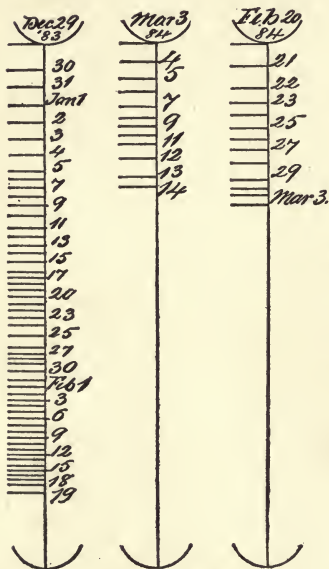 Dec 29
'83
30
31
Jan 1
2
3
4
5
7
9
11
13
15
17
20
23
25
27
30
Feb 1
3
6
9
12
15
18
19
Mar 3
84
4
5
7
9
11
12
13
14
Feb 20
84
21
22
23
25
27
29
Mar 3.